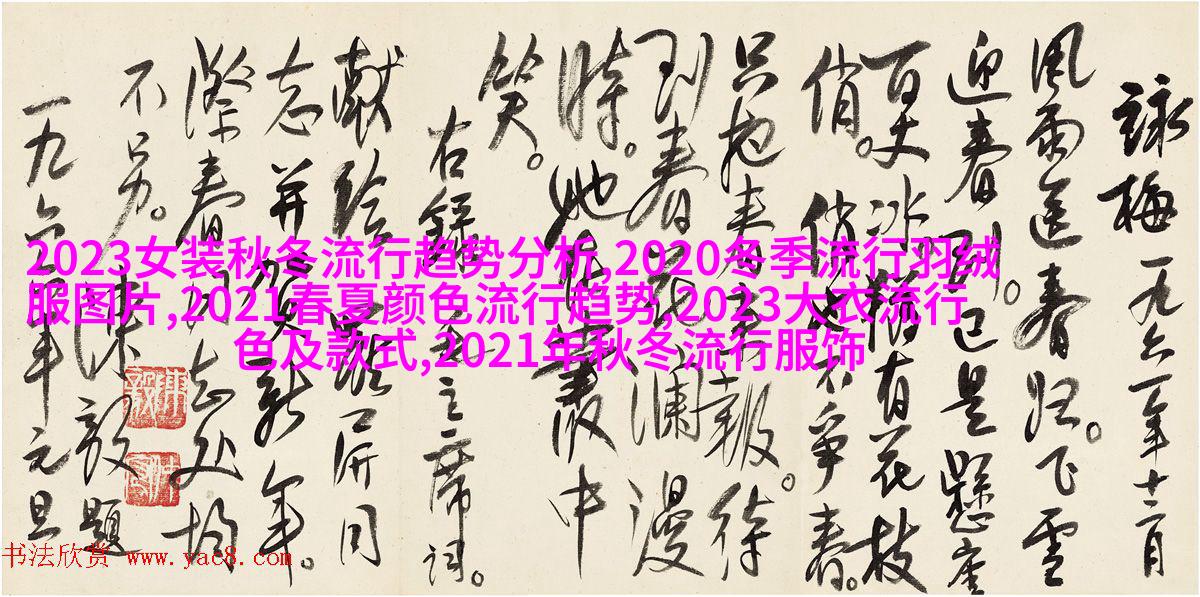 詠梅 一九六一年十二月
風雨送春归。飞雪
迎春到。已是懸崖
百丈冰。猶有花枝
俏。俏也不争春。
只把春来報。待
到春花瀾漫
時。她在叢中
笑。
右録主席詞。
献给屏同
志并賀新年。
際春同志处均
不另。陳毅題
一九六二年元旦
2023女装秋冬流行趋势分析,2020冬季流行羽绒
服图片,2021春夏颜色流行趋势,2023大衣流行
色及款式,2021年秋冬流行服饰
书法欣赏 www.yac8.com